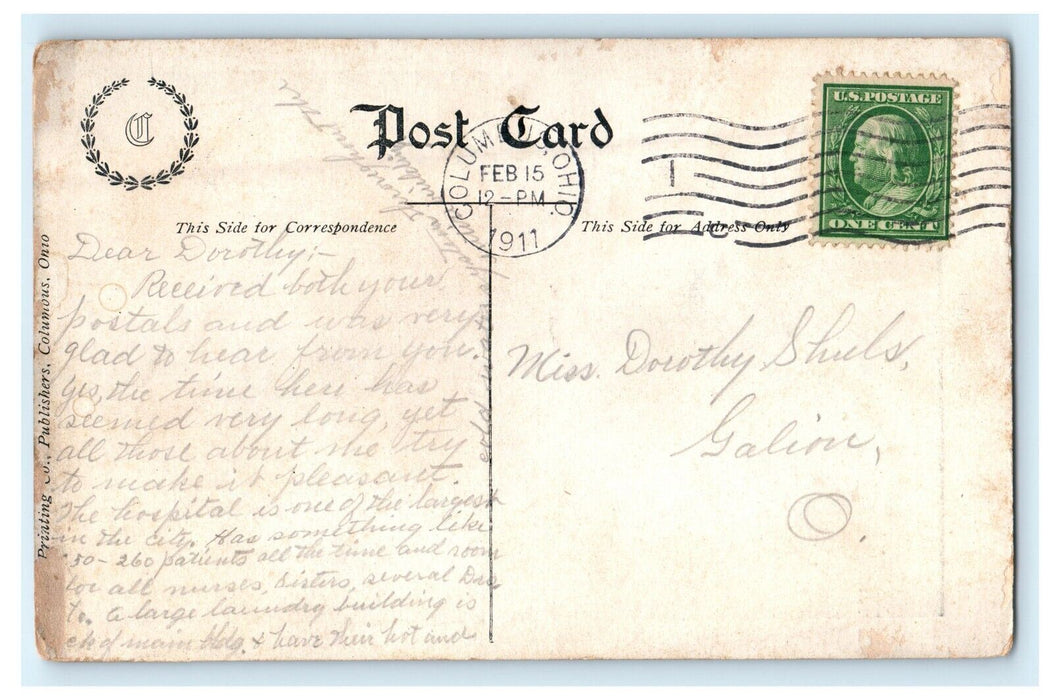 C
Post Card
COLUMBUS, OHIO.
FEB 15
12-PM
1911
U.S. POSTAGE
ONE CENT
This Side for Correspondence
This Side for Address Only
Printing Co., Publishers, Columbus, Ohio
Dear Dorothy;-
Received both your
postals and was very
glad to hear from you.
Yes, the time here has
seemed very long, yet
all those about me try
to make it pleasant.
The hospital is one of the largest
in the city. Has something like
50-260 patients all the time and room
for all nurses, Sisters, several Drs
to. A large laundry building is
ck of main bldg. & have their hot and
cold water
Miss. Dorothy Shuls,
Galion,
O.